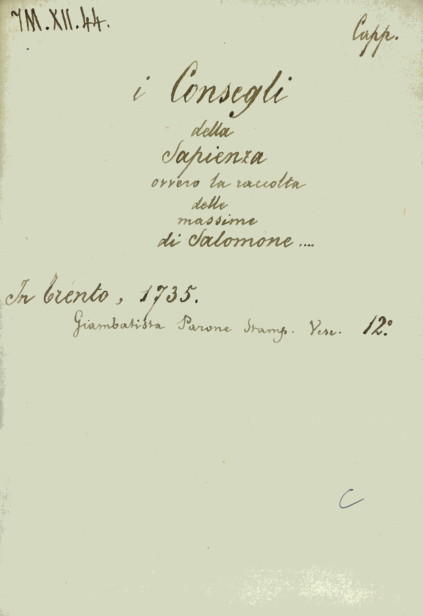 7M.XII.44.
Capp.
i Consegli
della
Sapienza
ovvero la raccolta
delle
massime
di Salomone ....
In Trento, 1735.
Giambatista Parone Stamp. Vesc. 12º
C